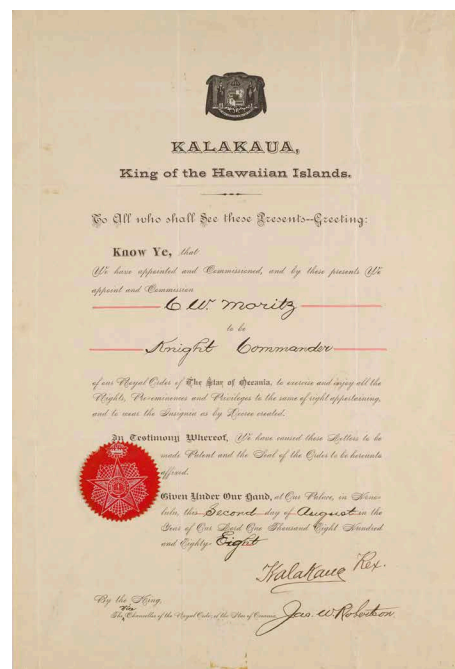 KALAKAUA,
King of the Hawaiian Islands.
To All who shall See these Presents--Greeting:
Know Ye, that
We have appointed and Commissioned, and by these presents We
appoint and Commission
C. W. Moritz
to be
Knight Commander
of our Royal Order of The Star of Oceania, to exercise and enjoy all the
Rights, Pre-eminences and Privileges to the same of right appertaining,
and to wear the Insignia as by Decree created.
In Testimony Whereof, We have caused these Letters to be
made Patent and the Seal of the Order to be hereunto
affixed.
Given Under Our Hand, at Our Palace, in Hono-
lulu, this Second day of August in the
Year of Our Lord One Thousand Eight Hundred
and Eighty-Eight
Kalakaua Rex.
By the King,
Vice
The Chancellor of the Royal Order of the Star of Oceania,
Jas. W. Robertson